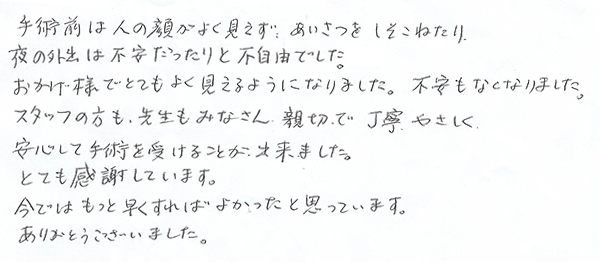 手術前は人の顔がよく見えず、あいさつをしそこねたり、
夜の外出は不安だったりと不自由でした。
おかげ様でとてもよく見えるようになりました。不安もなくなりました。
スタッフの方も、先生もみなさん、親切で丁寧、やさしく、
安心して手術を受けることが、出来ました。
とても感謝しています。
今ではもっと早くすればよかったと思っています。
ありがとうございました。